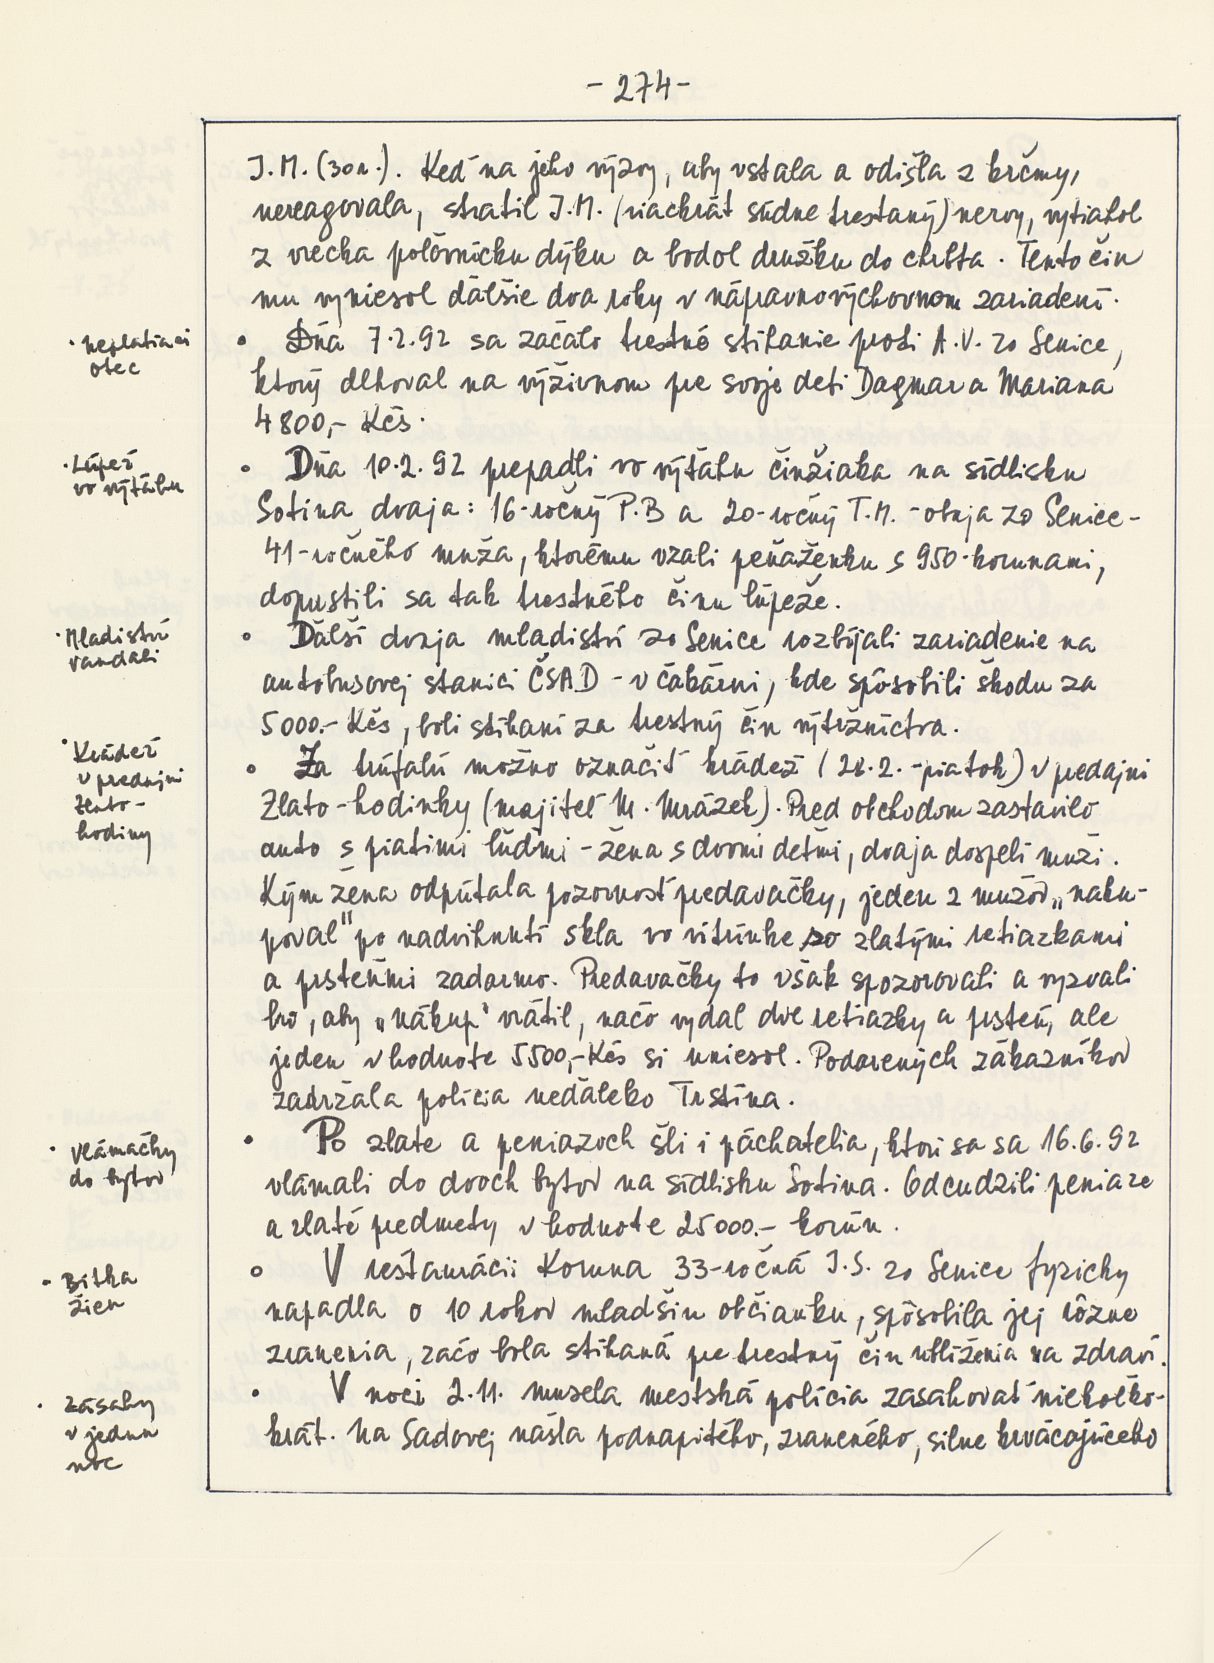 - 274 -
J. M. (30 r.). Keď na jeho výzvy, aby vstala a odišla z krčmy,
nereagovala, stratil J.M. (viackrát súdne trestaný) nervy, vytiahol
z vrecka poľovnícku dýku a bodol družku do chrbta. Tento čin
mu vyniesol ďalšie dva roky v nápravnovýchovnom zariadení.
• neplatiaci
otec
• Dňa 7.2.92 sa začalo trestné stíhanie proti A.V. zo Senice,
ktorý dlhoval na výživnom pre svoje deti Dagmar a Mariana
4800,- Kčs.
• Lúpež
vo výťahu
• Dňa 10.2.92 prepadli vo výťahu činžiaka na sídlisku
Sotina dvaja: 16-ročný P.B a 20-ročný T.M. - obaja zo Senice -
41-ročného muža, ktorému vzali peňaženku s 950-korunami,
dopustili sa tak trestného činu lúpeže.
• Mladiství
vandali
• Ďalší dvaja mladiství zo Senice rozbíjali zariadenie na
autobusovej stanici ČSAD - v čakárni, kde spôsobili škodu za
5000.- Kčs, boli stíhaní za trestný čin výtržníctva.
• Krádež
v predajni
zlato-
hodiny
• Za trúfalú možno označiť krádež (28.2. - piatok) v predajni
Zlato-hodinky (majiteľ M. Mrázek). Pred obchodom zastavilo
auto s piatimi ľuďmi - žena s dvomi deťmi, dvaja dospelí muži.
Kým žena odpútala pozornosť predavačky, jeden z mužov „naku-
poval" po nadvihnutí skla vo vitrínke so zlatými retiazkami
a prsteňmi zadarmo. Predavačky to však spozorovali a vyzvali
ho, aby „nákup" vrátil, načo vydal dve retiazky a prsteň, ale
jeden v hodnote 5500,- Kčs si uniesol. Podarených zákazníkov
zadržala polícia neďaleko Trstína.
• vlámačky
do bytov
• Po zlate a peniazoch šli i páchatelia, ktorí sa sa 16.6.92
vlámali do dvoch bytov na sídlisku Sotina. Odcudzili peniaze
a zlaté predmety v hodnote 25000.- korún.
• Bitka
žien
• V reštaurácii Koruna 33-ročná J.S. zo Senice fyzicky
napadla o 10 rokov mladšiu občianku, spôsobila jej rôzne
zranenia, začo bola stíhaná pre trestný čin ublíženia na zdraví.
• zásahy
v jednu
noc
• V noci 2.11. musela mestská polícia zasahovať niekoľko-
krát. Na Sadovej našla podnapitého, zraneného, silne krvácajúceho